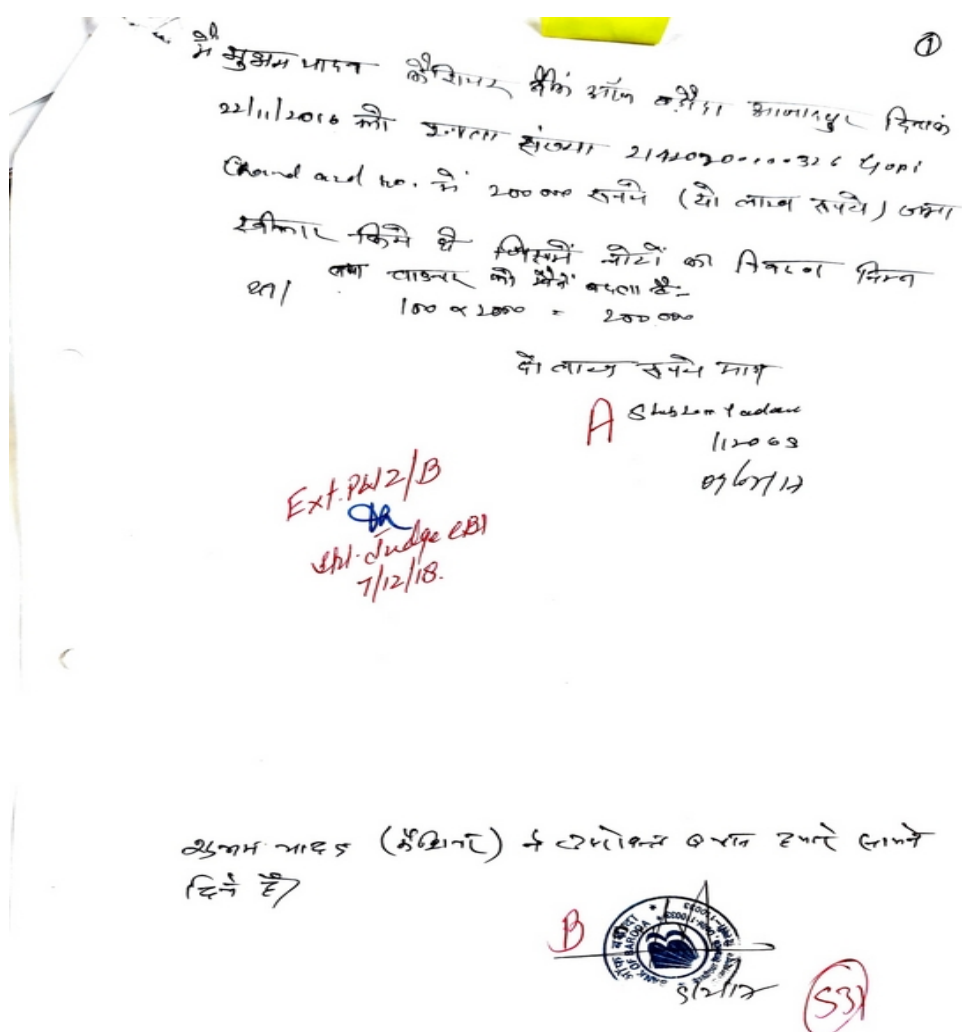 ①
मैं शुभम यादव कैशियर बैंक ऑफ बड़ौदा आजादपुर दिनांक
22/11/2016 को खाता संख्या Gopi
Chand and no. में 200000 रूपये (दो लाख रूपये) जमा
स्वीकार किये थे जिसमें नोटों का विवरण निम्न
था।
तथा वाउचर को मैंने बदला है-
100 x 2000 = 200000
दो लाख रूपये मात्र
A
Shubham Yadav
112063
Ext. PW2/B
Spl. Judge CBI
7/12/18.
शुभम यादव (कैशियर) ने उपरोक्त बयान हमारे सामने
दिये है।
B
BANK OF BARODA
9/2/17